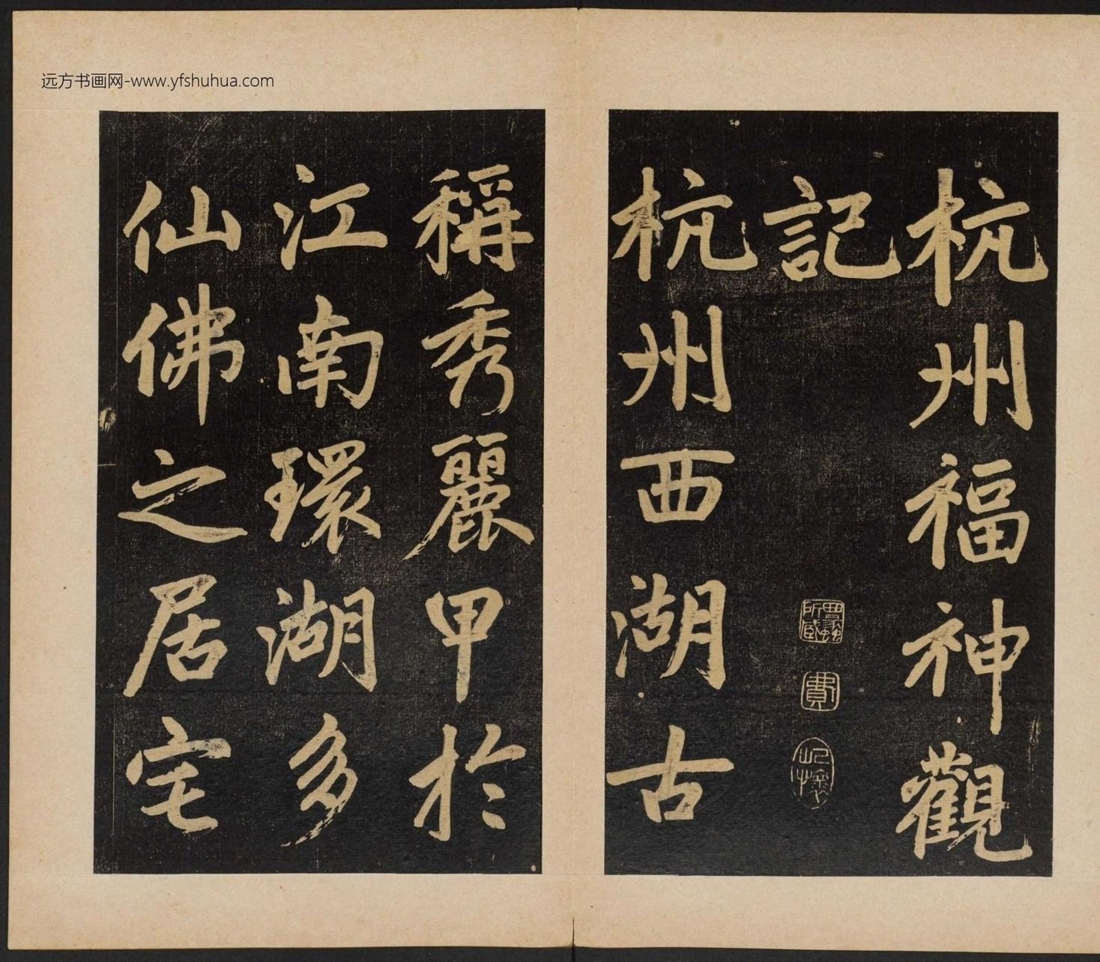 远方书画网-www.yfshuhua.com
杭州福神觀
記
杭州西湖古
稱秀麗甲於
江南環湖多
仙佛之居宅
費